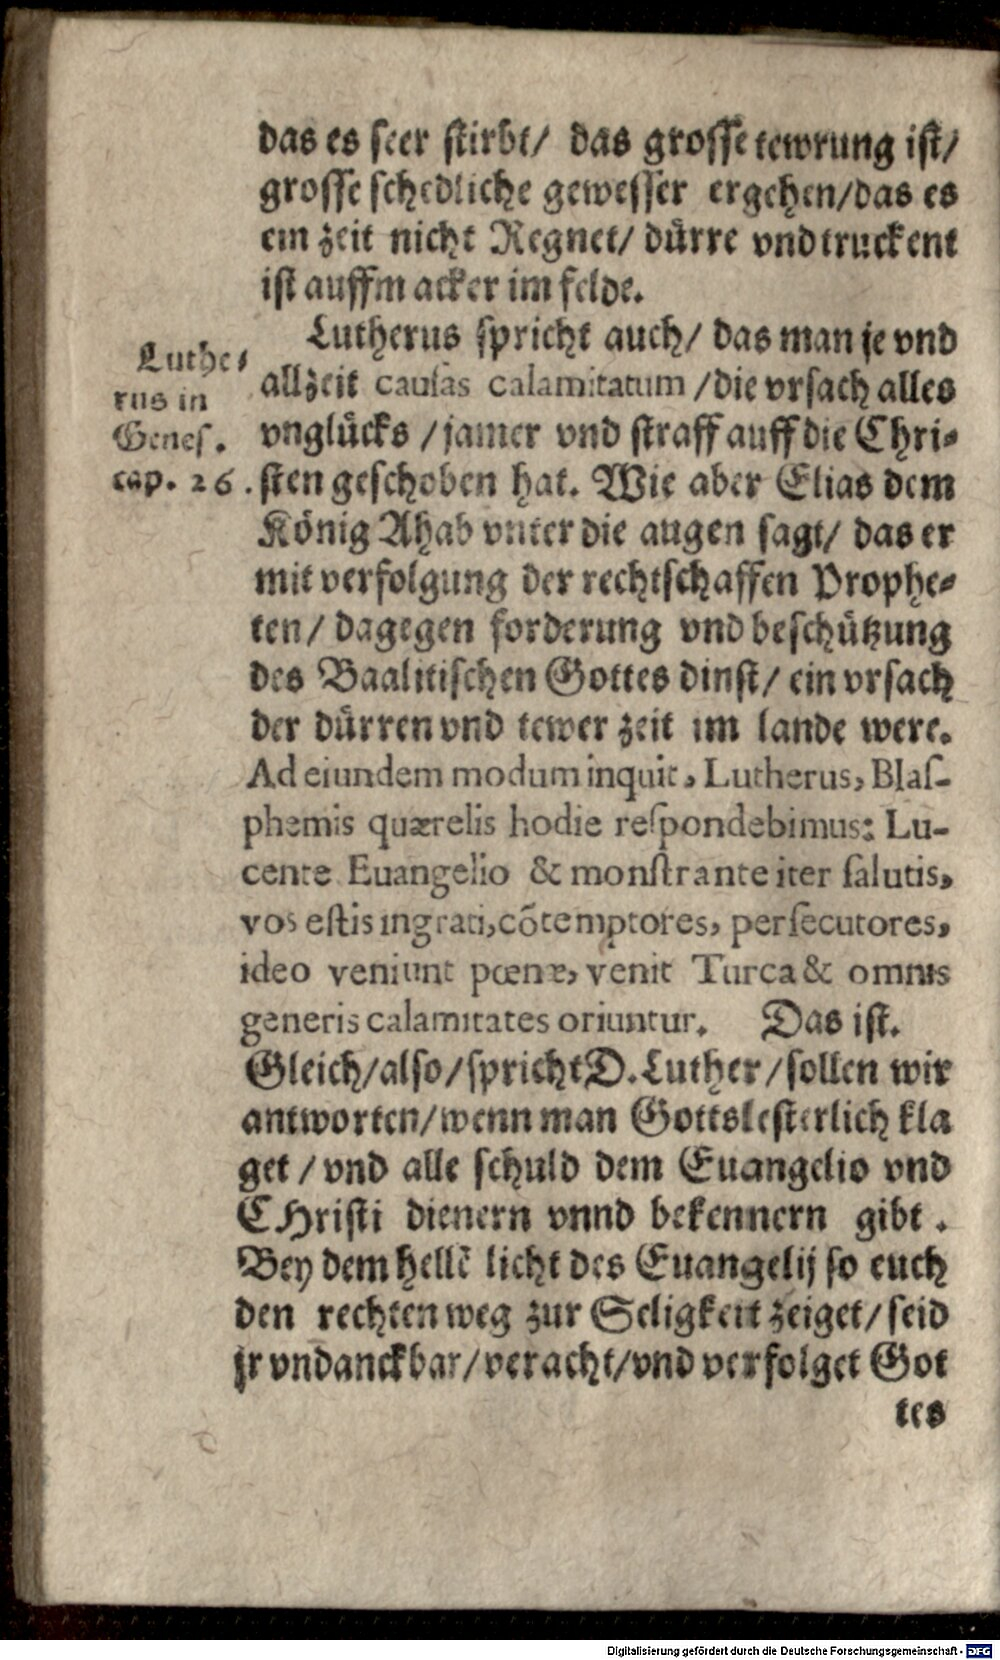 das es seer stirbt/ das grosse tewrung ist/
grosse schedliche gewesser ergehen/das es
ein zeit nicht Regnet/ dürre vnd truckent
ist auffm acker im felde.
Lutherus spricht auch/ das man je vnd
allzeit cauſas calamitatum /die vrsach alles
vnglücks /jamer vnd straff auff die Chri-
sten geschoben hat. Wie aber Elias dem
König Ahab vnter die augen sagt/ das er
mit verfolgung der rechtschaffen Prophe-
ten/ dagegen forderung vnd beschützung
des Baalitischen Gottes dinst/ ein vrsach
der dürren vnd tewer zeit im lande were.
Ad eiundem modum inquit, Lutherus, Blaſ-
phemis quærelis hodie reſpondebimus: Lu-
cente Euangelio & monſtrante iter ſalutis,
vos eſtis ingrati,cõtemptores, perſecutores,
ideo veniunt pœnæ, venit Turca & omnis
generis calamitates oriuntur. Das ist.
Gleich/also/spricht D. Luther/sollen wir
antworten/wenn man Gottslesterlich kla
get / vnd alle schuld dem Euangelio vnd
CHristi dienern vnnd bekennern gibt .
Bey dem hellẽ licht des Euangelij so euch
den rechten weg zur Seligkeit zeiget/ seid
jr vndanckbar/veracht/vnd verfolget Got
tes
Luthe-
rus in
Genes.
cap. 26.
Digitalisierung gefördert durch die Deutsche Forschungsgemeinschaft - DFG